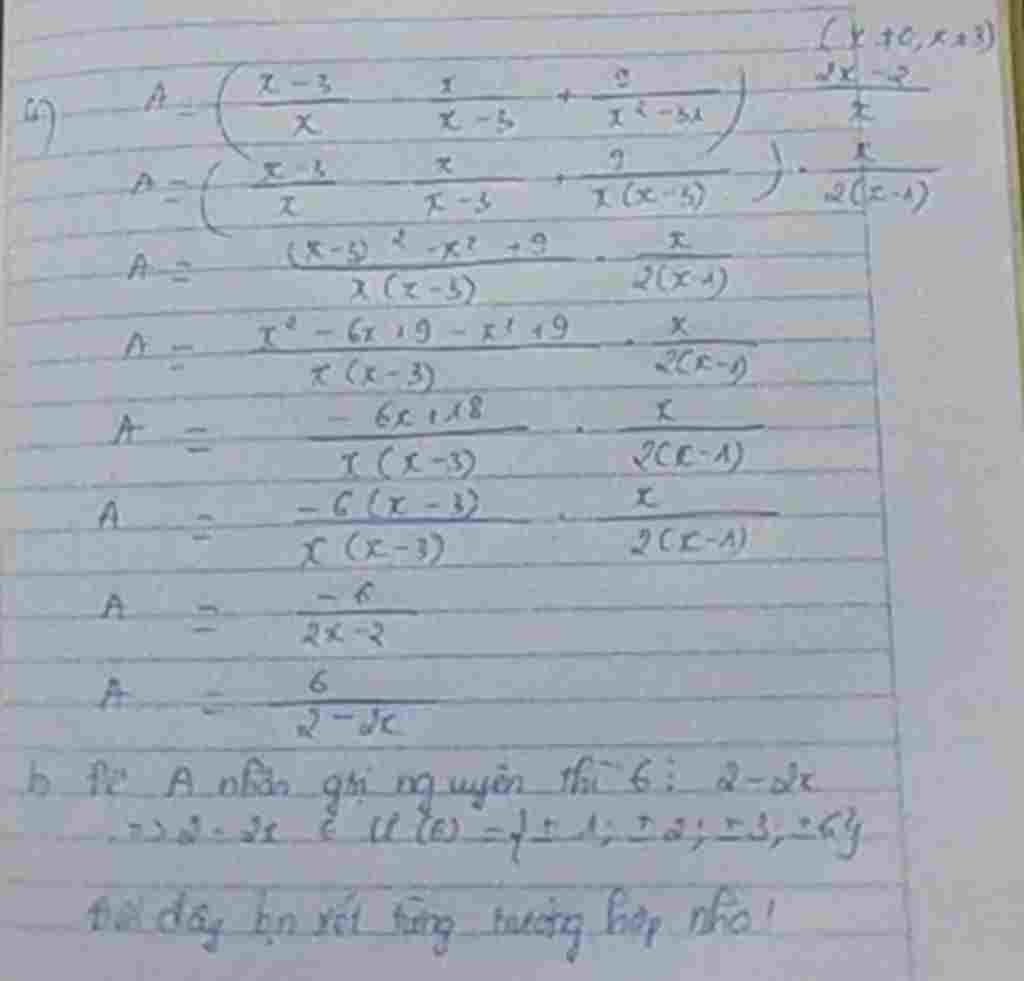 (x ≠ 0, x ≠ 3)
a) A = ( (x - 3)/x   x/(x - 3) + 9/(x² - 3x) )   (2x - 2)/x
A = ( (x - 3)/x - x/(x - 3) + 9/(x(x - 3)) ) · x/(2(x - 1))
A = ((x - 3)² - x² + 9)/(x(x - 3)) · x/(2(x - 1))
A = (x² - 6x + 9 - x² + 9)/(x(x - 3)) · x/(2(x - 1))
A = (- 6x + 18)/(x(x - 3)) · x/(2(x - 1))
A = (- 6(x - 3))/(x(x - 3)) · x/(2(x - 1))
A = (- 6)/(2x - 2)
A = 6/(2 - 2x)
b Để A nhận giá trị nguyên thì 6 ⋮ 2 - 2x
=> 2 - 2x ∈ Ư(6) = {± 1; ± 2; ± 3; ± 6}
Tới đây bn xét từng trường hợp nha!